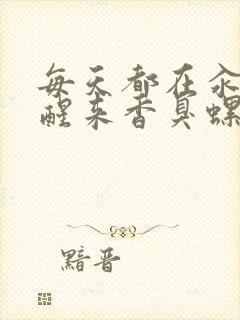 每天都在汆
醒来香臭螺
黯晋